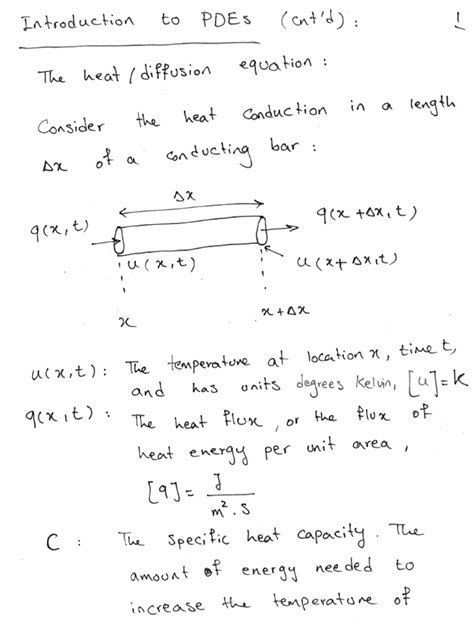 Introduction to PDEs (cnt'd): 1
The heat/diffusion equation:
Consider the heat conduction in a length
Δx of a conducting bar:
Δx
q(x,t)
q(x+Δx,t)
u(x,t)
u(x+Δx,t)
x
x+Δx
u(x,t): The temperature at location x, time t,
and has units degrees Kelvin, [u]=K
q(x,t): The heat flux, or the flux of
heat energy per unit area,
[q] = J
m².s
C: The specific heat capacity. The
amount of energy needed to
increase the temperature of